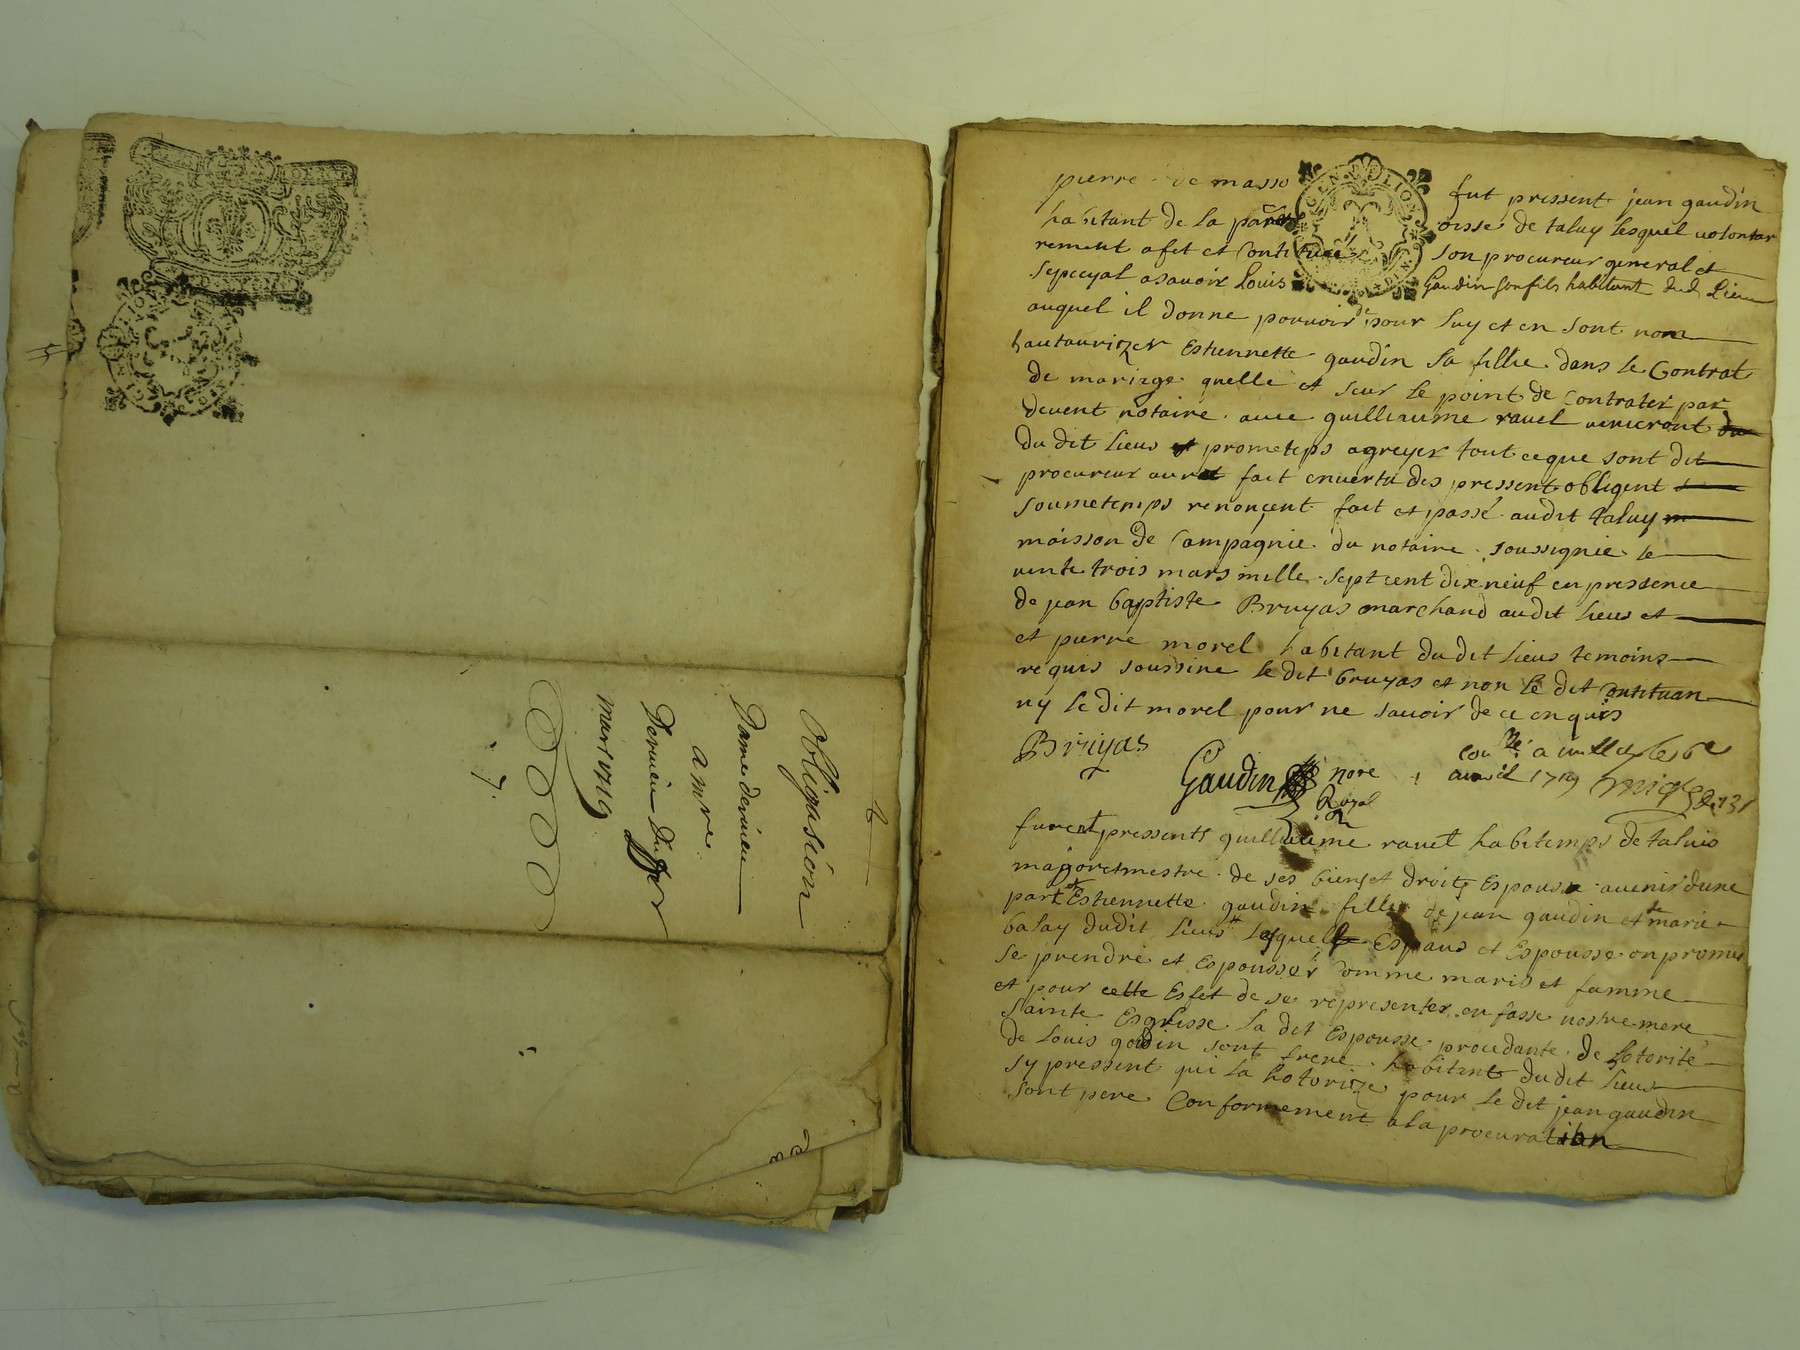 Obligasion
Dame derieu
a mre
Derrieu Du
mars 1719
7.
pierre de masso fut pressent jean gaudin
habitant de la paroisse de taluy lesquel volontai
rement a fet et Contitué son procureur general et
sepecyal asavoir Louis Gaudin son fils habitant dud Lieu
auquel il donne pouvoir de pour luy et en sont nom
hautaurizer Estiennette gaudin sa fillie dans le Contrat
de mariage quelle et seur le point de Contrater par
devent notaire avec guilliaume ravel
du dit Lieus et prometeps agreyer tout ceque sont dit
procureur aurat fait envertu des pressent obligent
soumetemps renonçent fait et passé audit taluy
maisson de Campagnie du notaire soussignié le
vente trois mars mille sept cent dix neuf en pressence
de jean baptiste Bruyas marchand audit Lieus et
et pierre morel habitant du dit Lieus temoins
requis soussine le dit bruyas et non le dit Contituan
ny le dit morel pour ne savoir de ce enquis
Bruyas
Gaudin nore Royal
avril 1719
furent pressents guilliaume ravel habitemps de taluis
magoretmestre de ses biens et droits Espoux avenir dune
part et Estiennette gaudin fillie de jean gaudin et de marie
balay dudit Lieus lesquell Espaus et Espousse on promis
se prendre et Espousser Comme maris et famme
et pour cette Esfet de se representer en fasse nostre mere
sainte Esglisse la dit Espousse procedante de Lotorité
de Louis godin sont frere habitant du dit Lieus
sy pressent qui la hotorize pour le dit jean gaudin
sont pere Conformement ala procuration